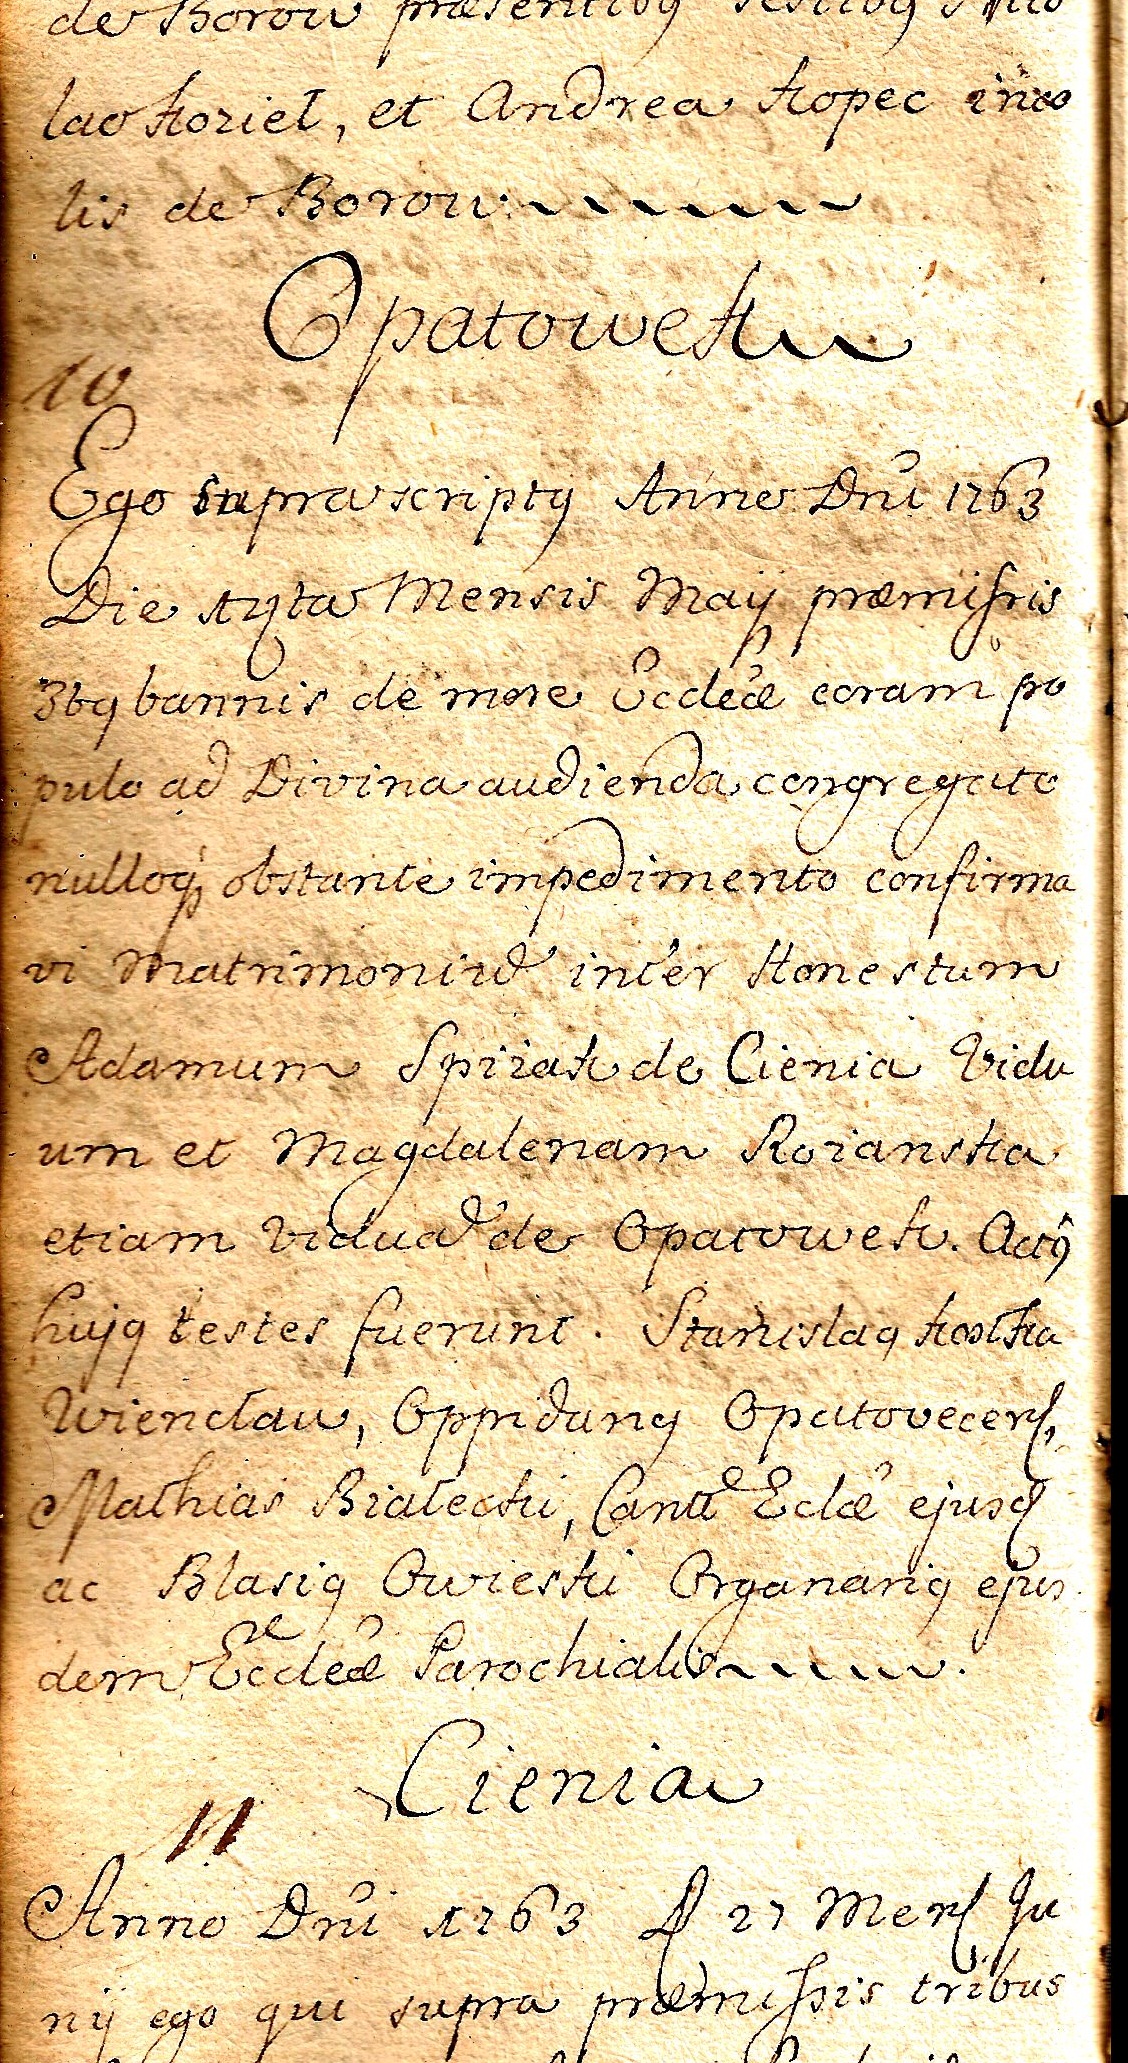 de Borow præsentibq testibq Nico
lao Koziel, et Andrea Kopec inco
lis de Borow.
Opatowek
10
Ego supra scriptq Anno Dni 1763
Die 1qta Mensis Maij præmissis
3bq bannis de more Ecclæ coram po
pulo ad Divina audienda congregato
nulloq obstante impedimento confirma
vi Matrimoniu inter Honestum
Adamum Spizak de Cienia Vidu
um et Magdalenam Rozanska
etiam Vidua de Opatowek. Actq
hujq testes fuerunt. Stanislaq Kostka
Wienclaw, Oppidanq Opatovecens,
Mathias Bialecki, Cant Eclæ ejusd
ac Blasiq Owieski Organariq ejus
dem Ecclæ Parochialis.
Cienia
11
Anno Dni 1763 D 27 Mens Ju
nij ego qui supra præmissis tribus